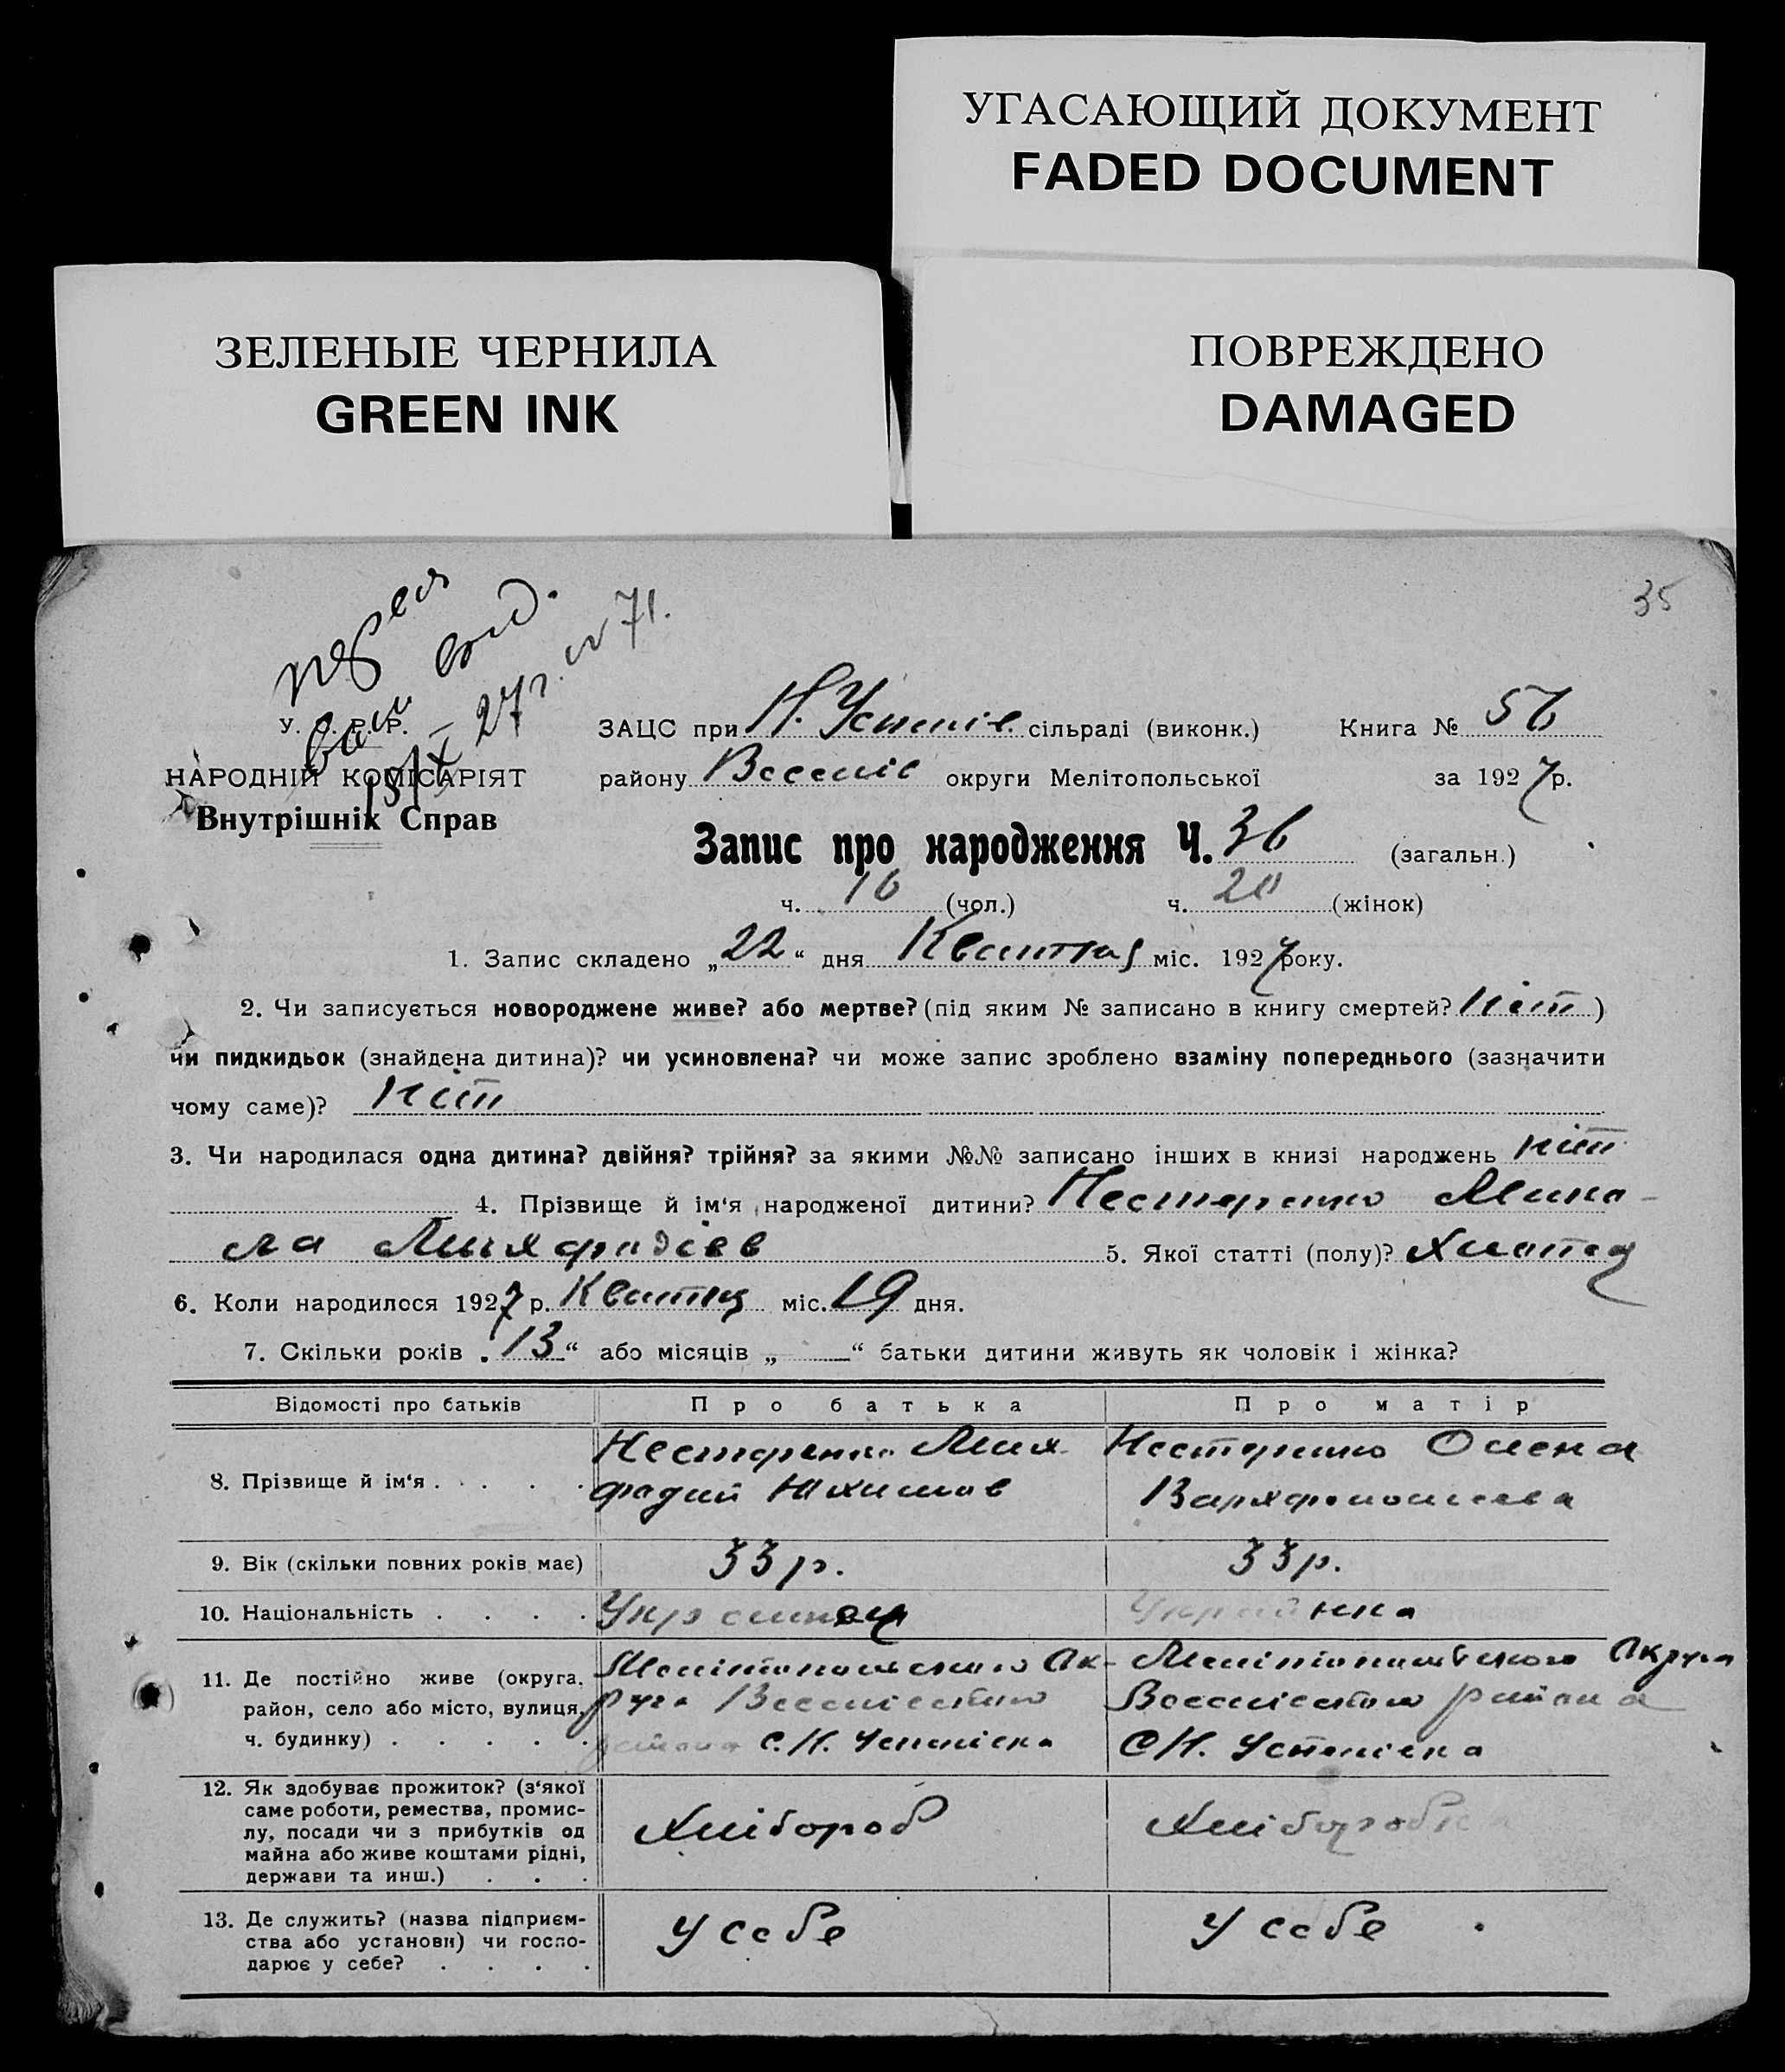 УГАСАЮЩИЙ ДОКУМЕНТ
FADED DOCUMENT
ЗЕЛЕНЫЕ ЧЕРНИЛА
GREEN INK
ПОВРЕЖДЕНО
DAMAGED
35
27 г. № 71.
У. С. Р. Р.
НАРОДНІЙ КОМІСАРІЯТ
Внутрішніх Справ
ЗАЦС при Н. Успенів. сільраді (виконк.) Книга № 56
району Веселів округи Мелітопольської за 1927 р.
Запис про народження Ч. 36 (загальн.)
ч. 16 (чол.) ч. 20 (жінок)
1. Запис складено „22“ дня Квитня міс. 1927 року.
2. Чи записується новороджене живе? або мертве? (під яким № записано в книгу смертей? Ніт)
чи пидкидьок (знайдена дитина)? чи усиновлена? чи може запис зроблено взаміну попереднього (зазначити
чому саме)? Ніт
3. Чи народилася одна дитина? двійня? трійня? за якими №№ записано інших в книзі народжень ніт
4. Прізвище й ім‘я народженої дитини? Нестеренко Мико-
ла Михфодіев 5. Якої статті (полу)? Хлопец
6. Коли народилося 1927 р. Квитня міс. 19 дня.
7. Скільки років „13“ або місяців „—“ батьки дитини живуть як чоловік і жінка?
Відомості про батьків Про батька Про матір
8. Прізвище й ім‘я . . . . Нестеренко Мих-
фодий Юхимов
Нестеренко Олена
Вархфоломеева
9. Вік (скільки повних років має) 33 р. 33 р.
10. Національність . . . . Украинец Украйнка
11. Де постійно живе (округа,
район, село або місто, вулиця,
ч. будинку) . . . . .
Мелітопольского Ок-
руга Веселівского
района С. Н. Успенівка
Мелітопольского Округа
Веселівского района
С Н. Успенівка
12. Як здобуває прожиток? (з‘якої
саме роботи, ремества, промис-
лу, посади чи з прибутків од
майна або живе коштами рідні,
держави та инш.) . . .
Хлібороб Хліборобка
13. Де служить? (назва підприєм-
ства або установи) чи госпо-
дарює у себе? . . . .
У себе У себе